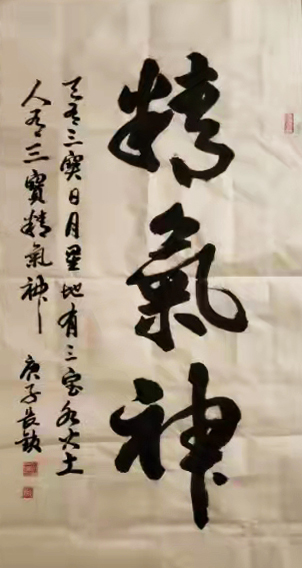 精氣神
天有三寶日月星地有三宝水火土
人有三寶精氣神
庚子长敏